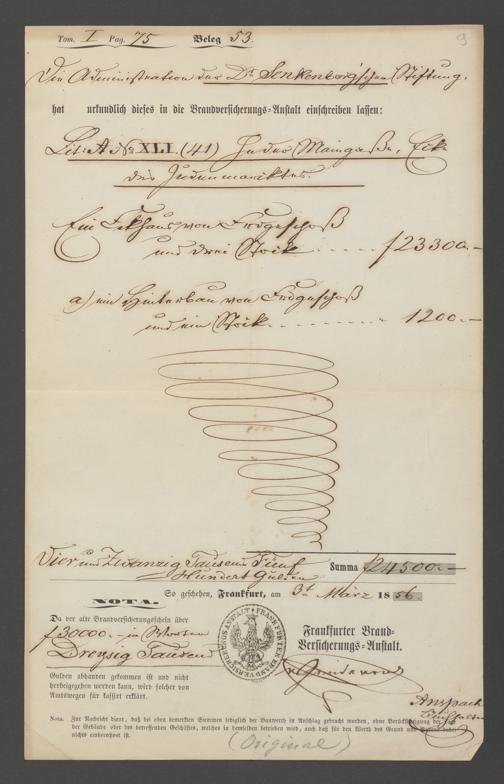 Tom. I Pag. 75 Beleg 53.
9
Die Administration der Dr. Senkenberg'schen Stiftung.
hat urkundlich dieses in die Brandversicherungs-Anstalt einschreiben lassen:
Lit: A No XLI. (41) In der Maingaße, Eck
des Judenmarcktes.
Ein Eckhaus von Erdgeschoß
und drei Stock . . . . . f 23300.–
a) ein Hinterbau von Erdgeschoß
und ein Stock. . . . . . . . . 1200.–
Vier und Zwanzig Tausend Fünf
Hundert Gulden
Summa f 24500.–
So geschehen, Frankfurt, am 3t. März 1856.
NOTA.
Da der alte Brandversicherungsschein über
f 30000.– in
Dreysig Tausend
Gulden abhanden gekommen ist und nicht
herbeigegeben werden kann, wird solcher von
Amtswegen für kassirt erklärt.
FRANKFURTER BRANDVERSICHERUNGS ANSTALT
Frankfurter Brand-
Versicherungs-Anstalt.
Anspach
Nota. Zur Nachricht dient, daß bei oben bemerkten Summen lediglich der Bauwerth in Anschlag gebracht worden, ohne Berücksichtigung der
der Gebäude oder des betreffenden Geschäftes, welches in demselben betrieben wird, auch daß für den Werth des Grund und
nichts einberechnet ist.
(Original)